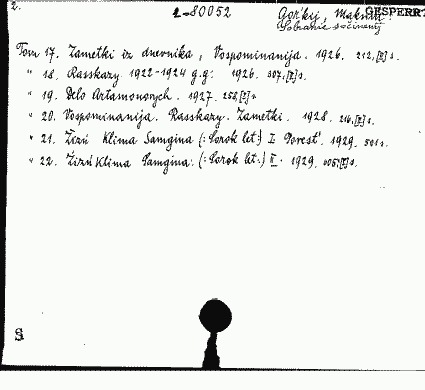 2.
2-80052
Gorkij, Maksim: GESPERRT
Sobranie sočinenij
Tom 17. Zametki iz dnevnika, Vospominanija. 1926. 212,[2] s.
" 18. Rasskazy 1922-1924 g.g. 1926. 307,[2] s.
" 19. Delo Artamonovych. 1927. 258,[2] s.
" 20. Vospominanija. Rasskazy. Zametki. 1928. 216,[2] s.
" 21. Žizń Klima Samgina (: Sorok let:) I. Povest'. 1929. 501 s.
" 22. Žizń Klima Samgina. (: Sorok let:) II. 1929. s.
S